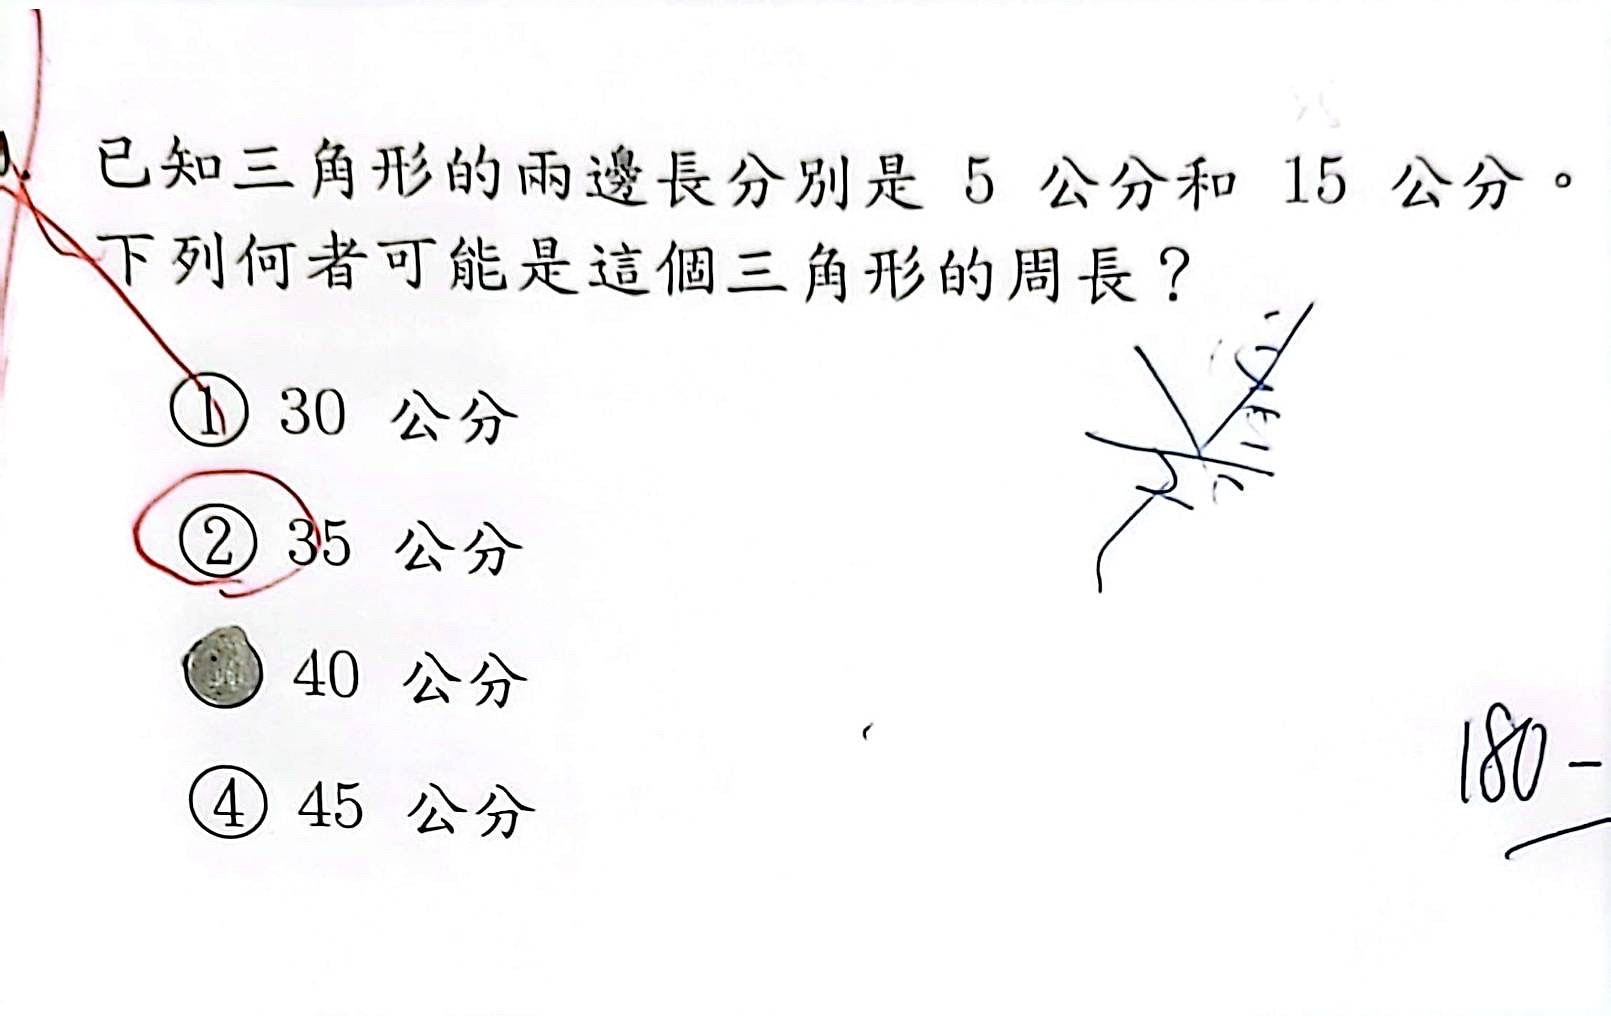 已知三角形的兩邊長分別是 5 公分和 15 公分。
下列何者可能是這個三角形的周長？
① 30 公分
② 35 公分
40 公分
④ 45 公分
180 -